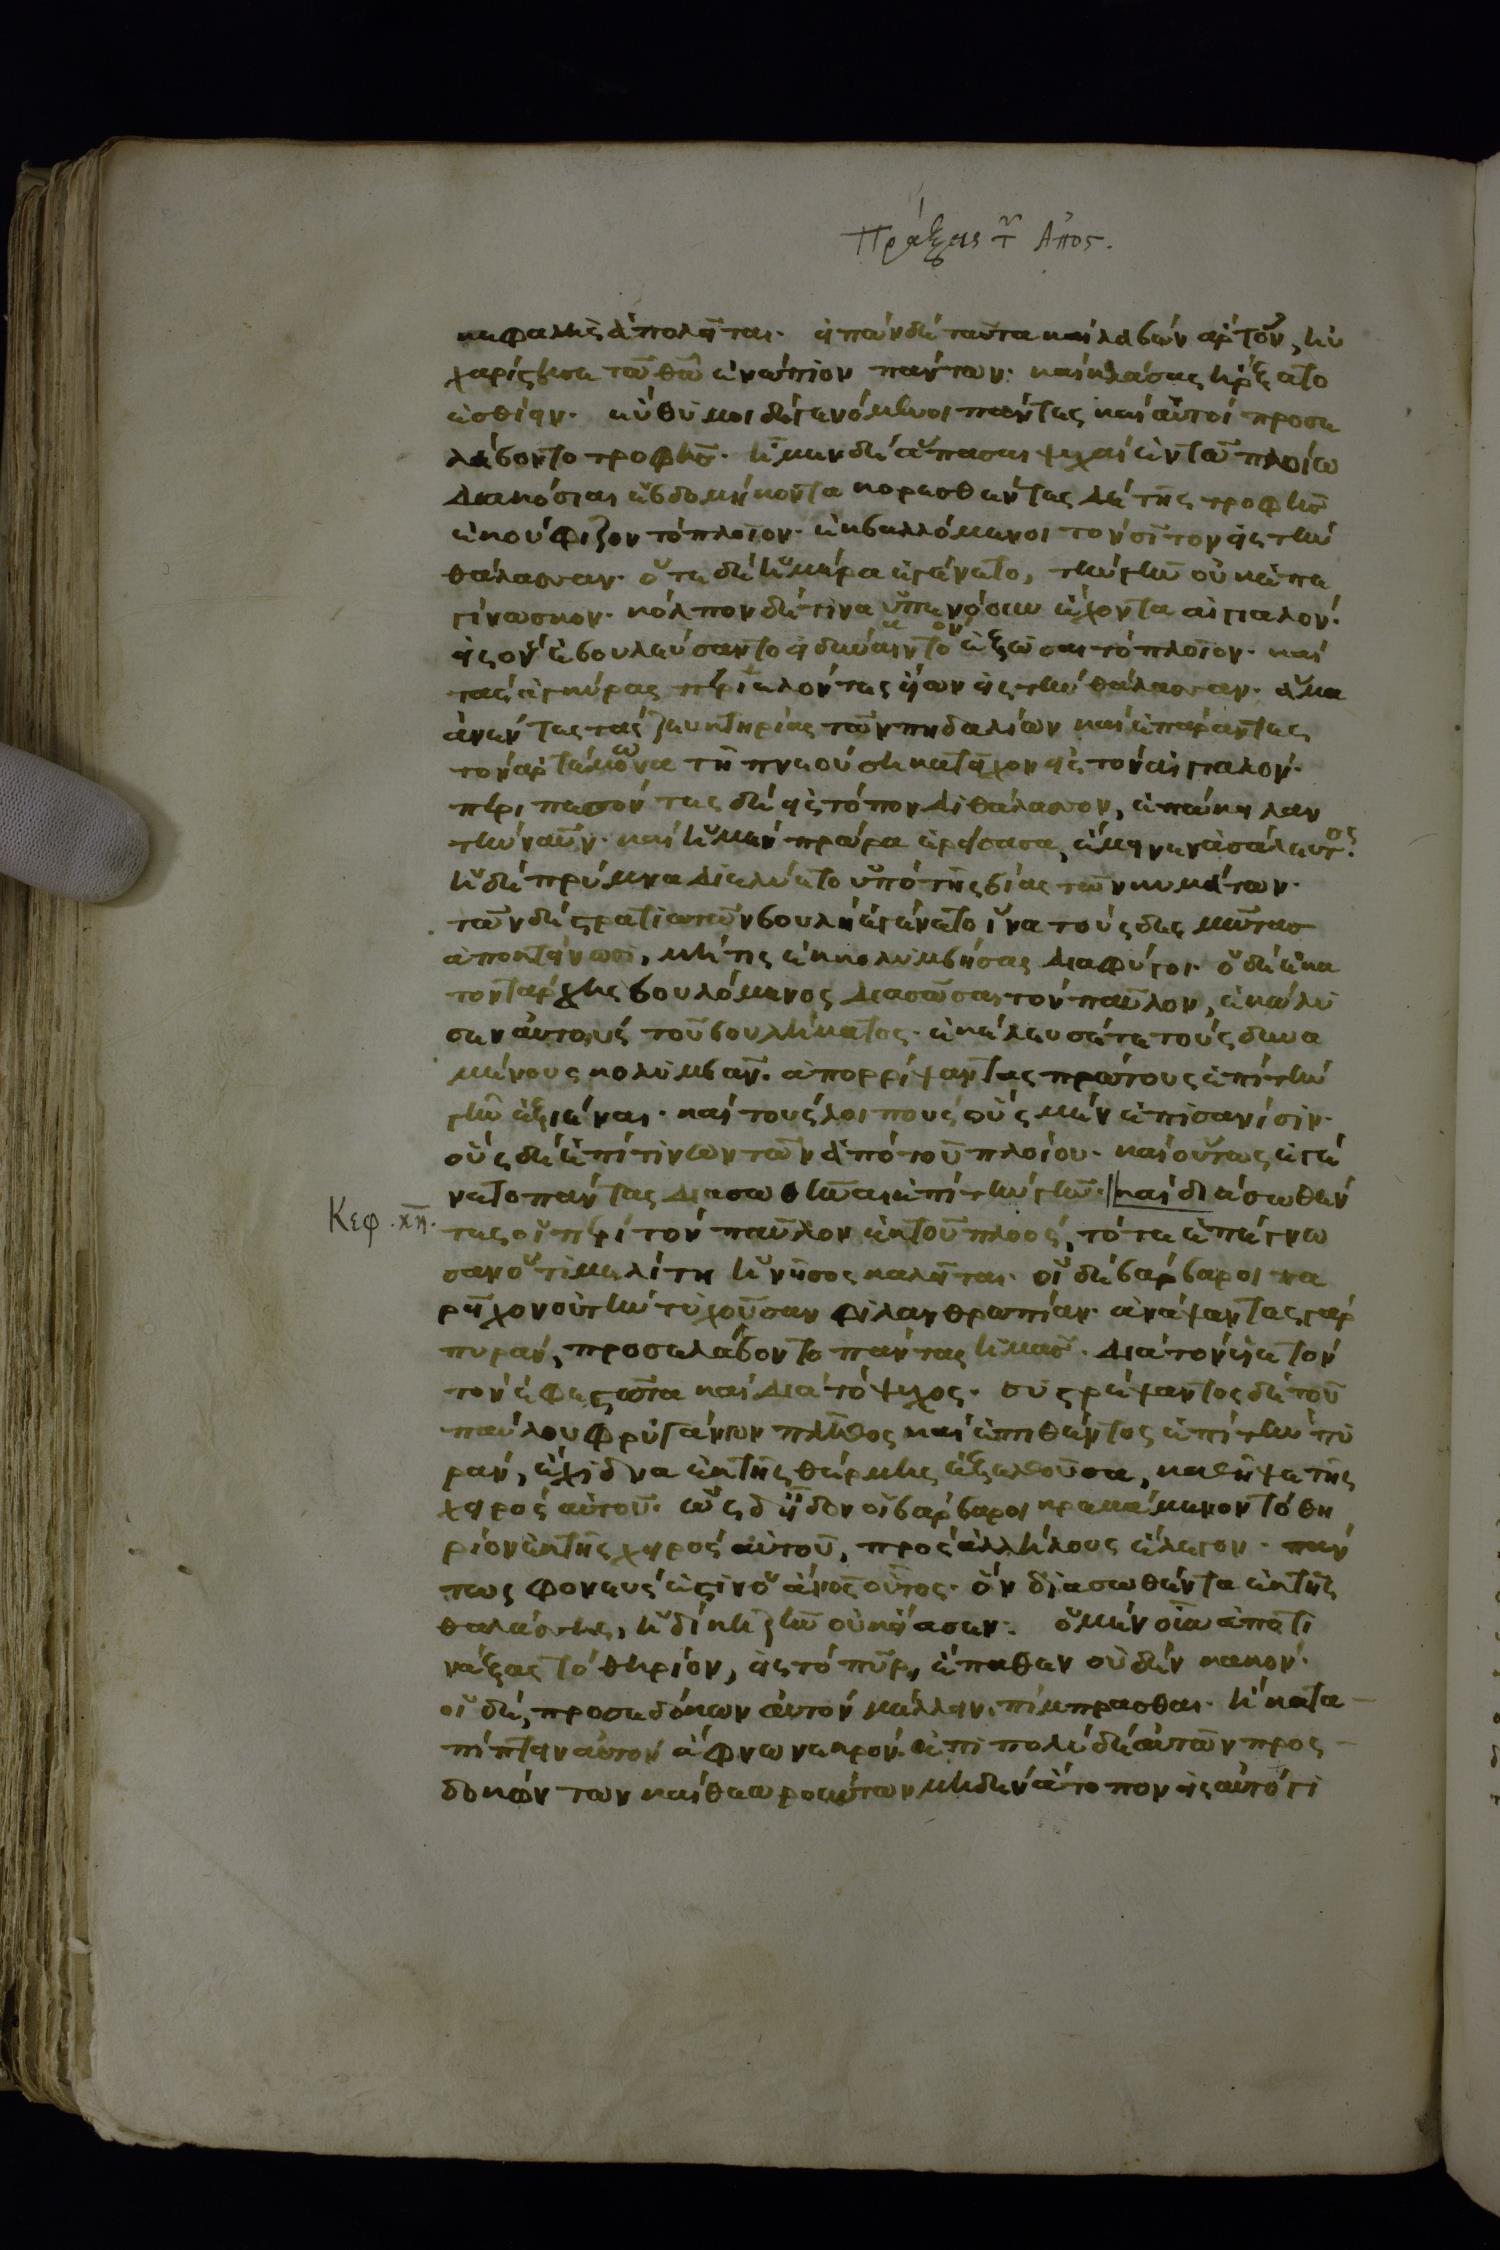 Πράξεις τ̃ Ἀπος.
κεφαλῆς ἀπολεῖται. εἰπὼν δὲ ταῦτα καὶ λαβὼν ἄρτον, εὐ
χαρίστησε τῶ θῶ ἐνώπιον πάντων. καὶ κλάσας ἤρξατο
ἐσθίειν. εὔθυμοι δὲ γενόμενοι πάντες καὶ αὐτοὶ προσε
λάβοντο τροφῆς. ἦμεν δὲ ἅπασαι ψυχαὶ ἐν τῶ πλοίω
διακόσιαι ἑβδομήκοντα κορεσθέντες δὲ τῆς τροφῆς
ἐκούφιζον τὸ πλοῖον. ἐκβαλλόμενοι τὸν σῖτον εἰς τὴν
θάλασσαν. ὅτε δὲ ἡμέρα ἐγένετο, τὴν γῆν οὐκ ἐπε
γίνωσκον. κόλπον δέ τινα ὑπενόουν ἔχοντα αἰγιαλόν.
εἰς ὃν ἐβουλεύσαντο εἰ δύναιντο ἐξῶσαι τὸ πλοῖον. καὶ
τὰς ἀγκύρας περιελόντες εἴων εἰς τὴν θάλασσαν. ἅμα
ἀνέντες τὰς ζευκτηρίας τῶν πηδαλίων καὶ ἐπάραντες
τὸν ἀρτέμονα τῆ πνεούση κατεῖχον εἰς τὸν αἰγιαλόν.
περιπεσόντες δὲ εἰς τόπον διθάλασσον, ἐπώκειλαν
τὴν ναῦν. καὶ ἡ μὲν πρώρα ἐρείσασα, ἔμεινεν ἀσάλευτος.
ἡ δὲ πρύμνα διελύετο ὑπὸ τῆς βίας τῶν κυμάτων.
τῶν δὲ στρατιωτῶν βουλὴ ἐγένετο ἵνα τοὺς δεσμώτας
ἀποκτείνωσι, μήτις ἐκκολυμβήσας διαφύγοι. ὁ δὲ ἑκα
τοντάρχης βουλόμενος διασῶσαι τὸν παῦλον, ἐκώλυ
σεν αὐτοὺς τοῦ βουλήματος. ἐκέλευσέ τε τοὺς δυνα
μένους κολυμβᾶν. ἀπορρίψαντας πρώτους ἐπὶ τὴν
γῆν ἐξιέναι. καὶ τοὺς λοιποὺς οὓς μὲν ἐπὶ σανίσιν.
οὓς δὲ ἐπί τινων τῶν ἀπὸ τοῦ πλοίου. καὶ οὕτως ἐγέ
νετο πάντας διασωθῆναι ἐπὶ τὴν γῆν. || καὶ διασωθέν
Κεφ. κη.
τες οἱ περὶ τὸν παῦλον ἐκ τοῦ πλοὸς, τότε ἐπέγνω
σαν ὅτι μελίτη ἡ νῆσος καλεῖται. οἱ δὲ βάρβαροι πα
ρεῖχον οὐ τὴν τυχοῦσαν φιλανθρωπίαν. ἀνάψαντες γὰρ
πυρὰν, προσελάβοντο πάντας ἡμᾶς. διὰ τὸν ὑετὸν
τὸν ἐφεστῶτα καὶ διὰ τὸ ψύχος. συστρέψαντος δὲ τοῦ
παύλου φρυγάνων πλῆθος καὶ ἐπιθέντος ἐπὶ τὴν πυ
ρὰν, ἔχιδνα ἐκ τῆς θέρμης ἐξελθοῦσα, καθῆψε τῆς
χειρὸς αὐτοῦ. ὡς δ εἶδον οἱ βάρβαροι κρεμάμενον τὸ θη
ρίον ἐκ τῆς χειρὸς αὐτοῦ, πρὸς ἀλλήλους ἔλεγον. πάν
τως φονεύς ἐστιν ὁ ἄνος οὗτος. ὃν διασωθέντα ἐκ τῆς
θαλάσσης, ἡ δίκη ζῆν οὐκ εἴασεν. ὁ μὲν οὖν ἀποτι
νάξας τὸ θηρίον, εἰς τὸ πῦρ, ἔπαθεν οὐδὲν κακόν.
οἱ δὲ, προσεδόκων αὐτὸν μέλλειν πίμπρασθαι. ἢ κατα
πίπτειν αὐτὸν ἄφνω νεκρόν. ἐπὶ πολὺ δὲ αὐτῶν προσ
δοκώντων καὶ θεωρούντων μηδὲν ἄτοπον εἰς αὐτὸ γι